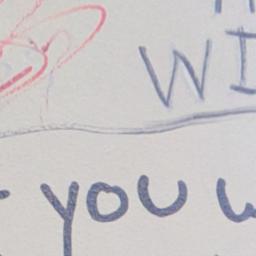 WI
you w